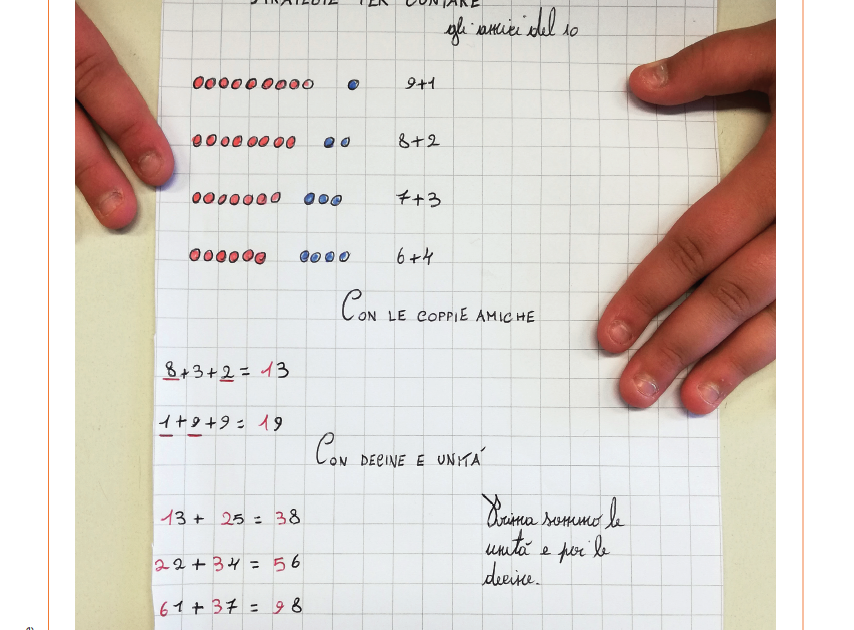 STRATEGIE PER CONTARE
gli amici del 10
9+1
8+2
7+3
6+4
CON LE COPPIE AMICHE
8+3+2= 13
1+9+9= 19
CON DECINE E UNITÁ
13 + 25 = 38
22+34 = 56
61+37 = 98
Prima sommo le
unità e poi le
decine.